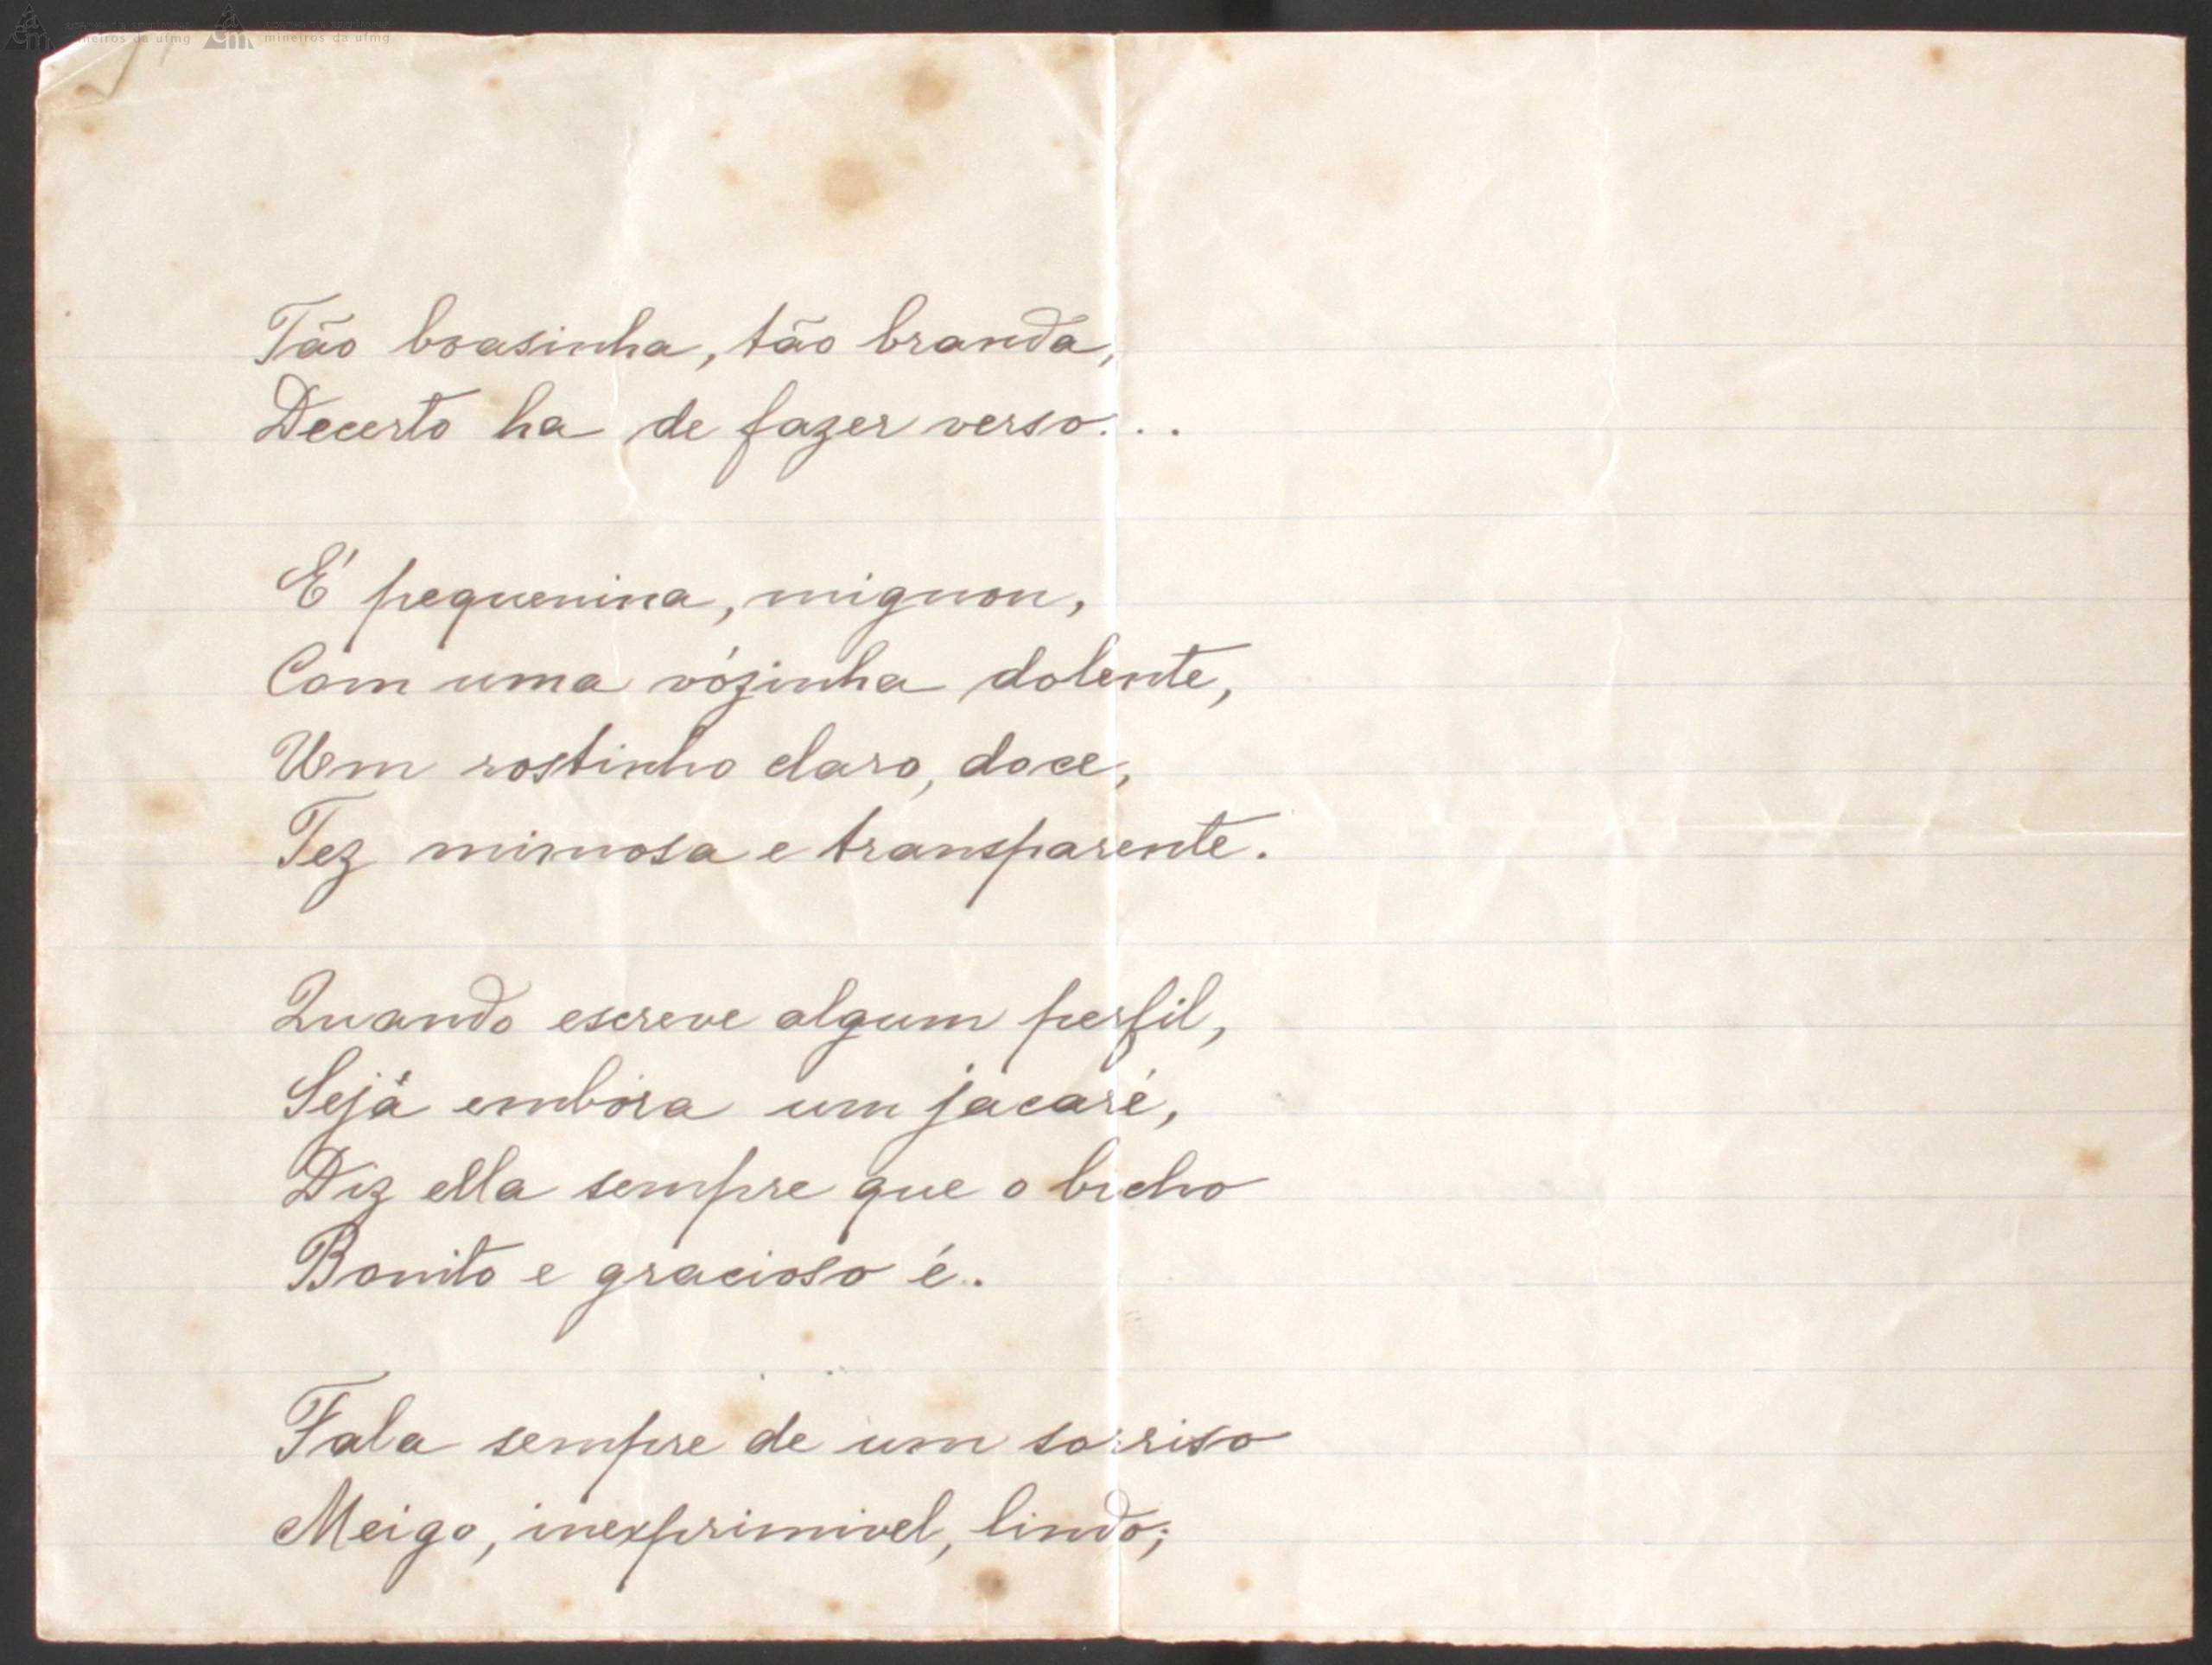 mineiros da ufmg
mineiros da ufmg
Tão boasinha, tão branda,
Decerto ha de fazer verso...
É pequenina, mignon,
Com uma vózinha dolente,
Um rostinho claro, doce,
Tez mimosa e transparente.
Quando escreve algum perfil,
Sejá embóra um jacaré,
Diz ella sempre que o bicho
Bonito e gracioso é..
Fala sempre de um sorriso
Meigo, inexprimivel, lindo;